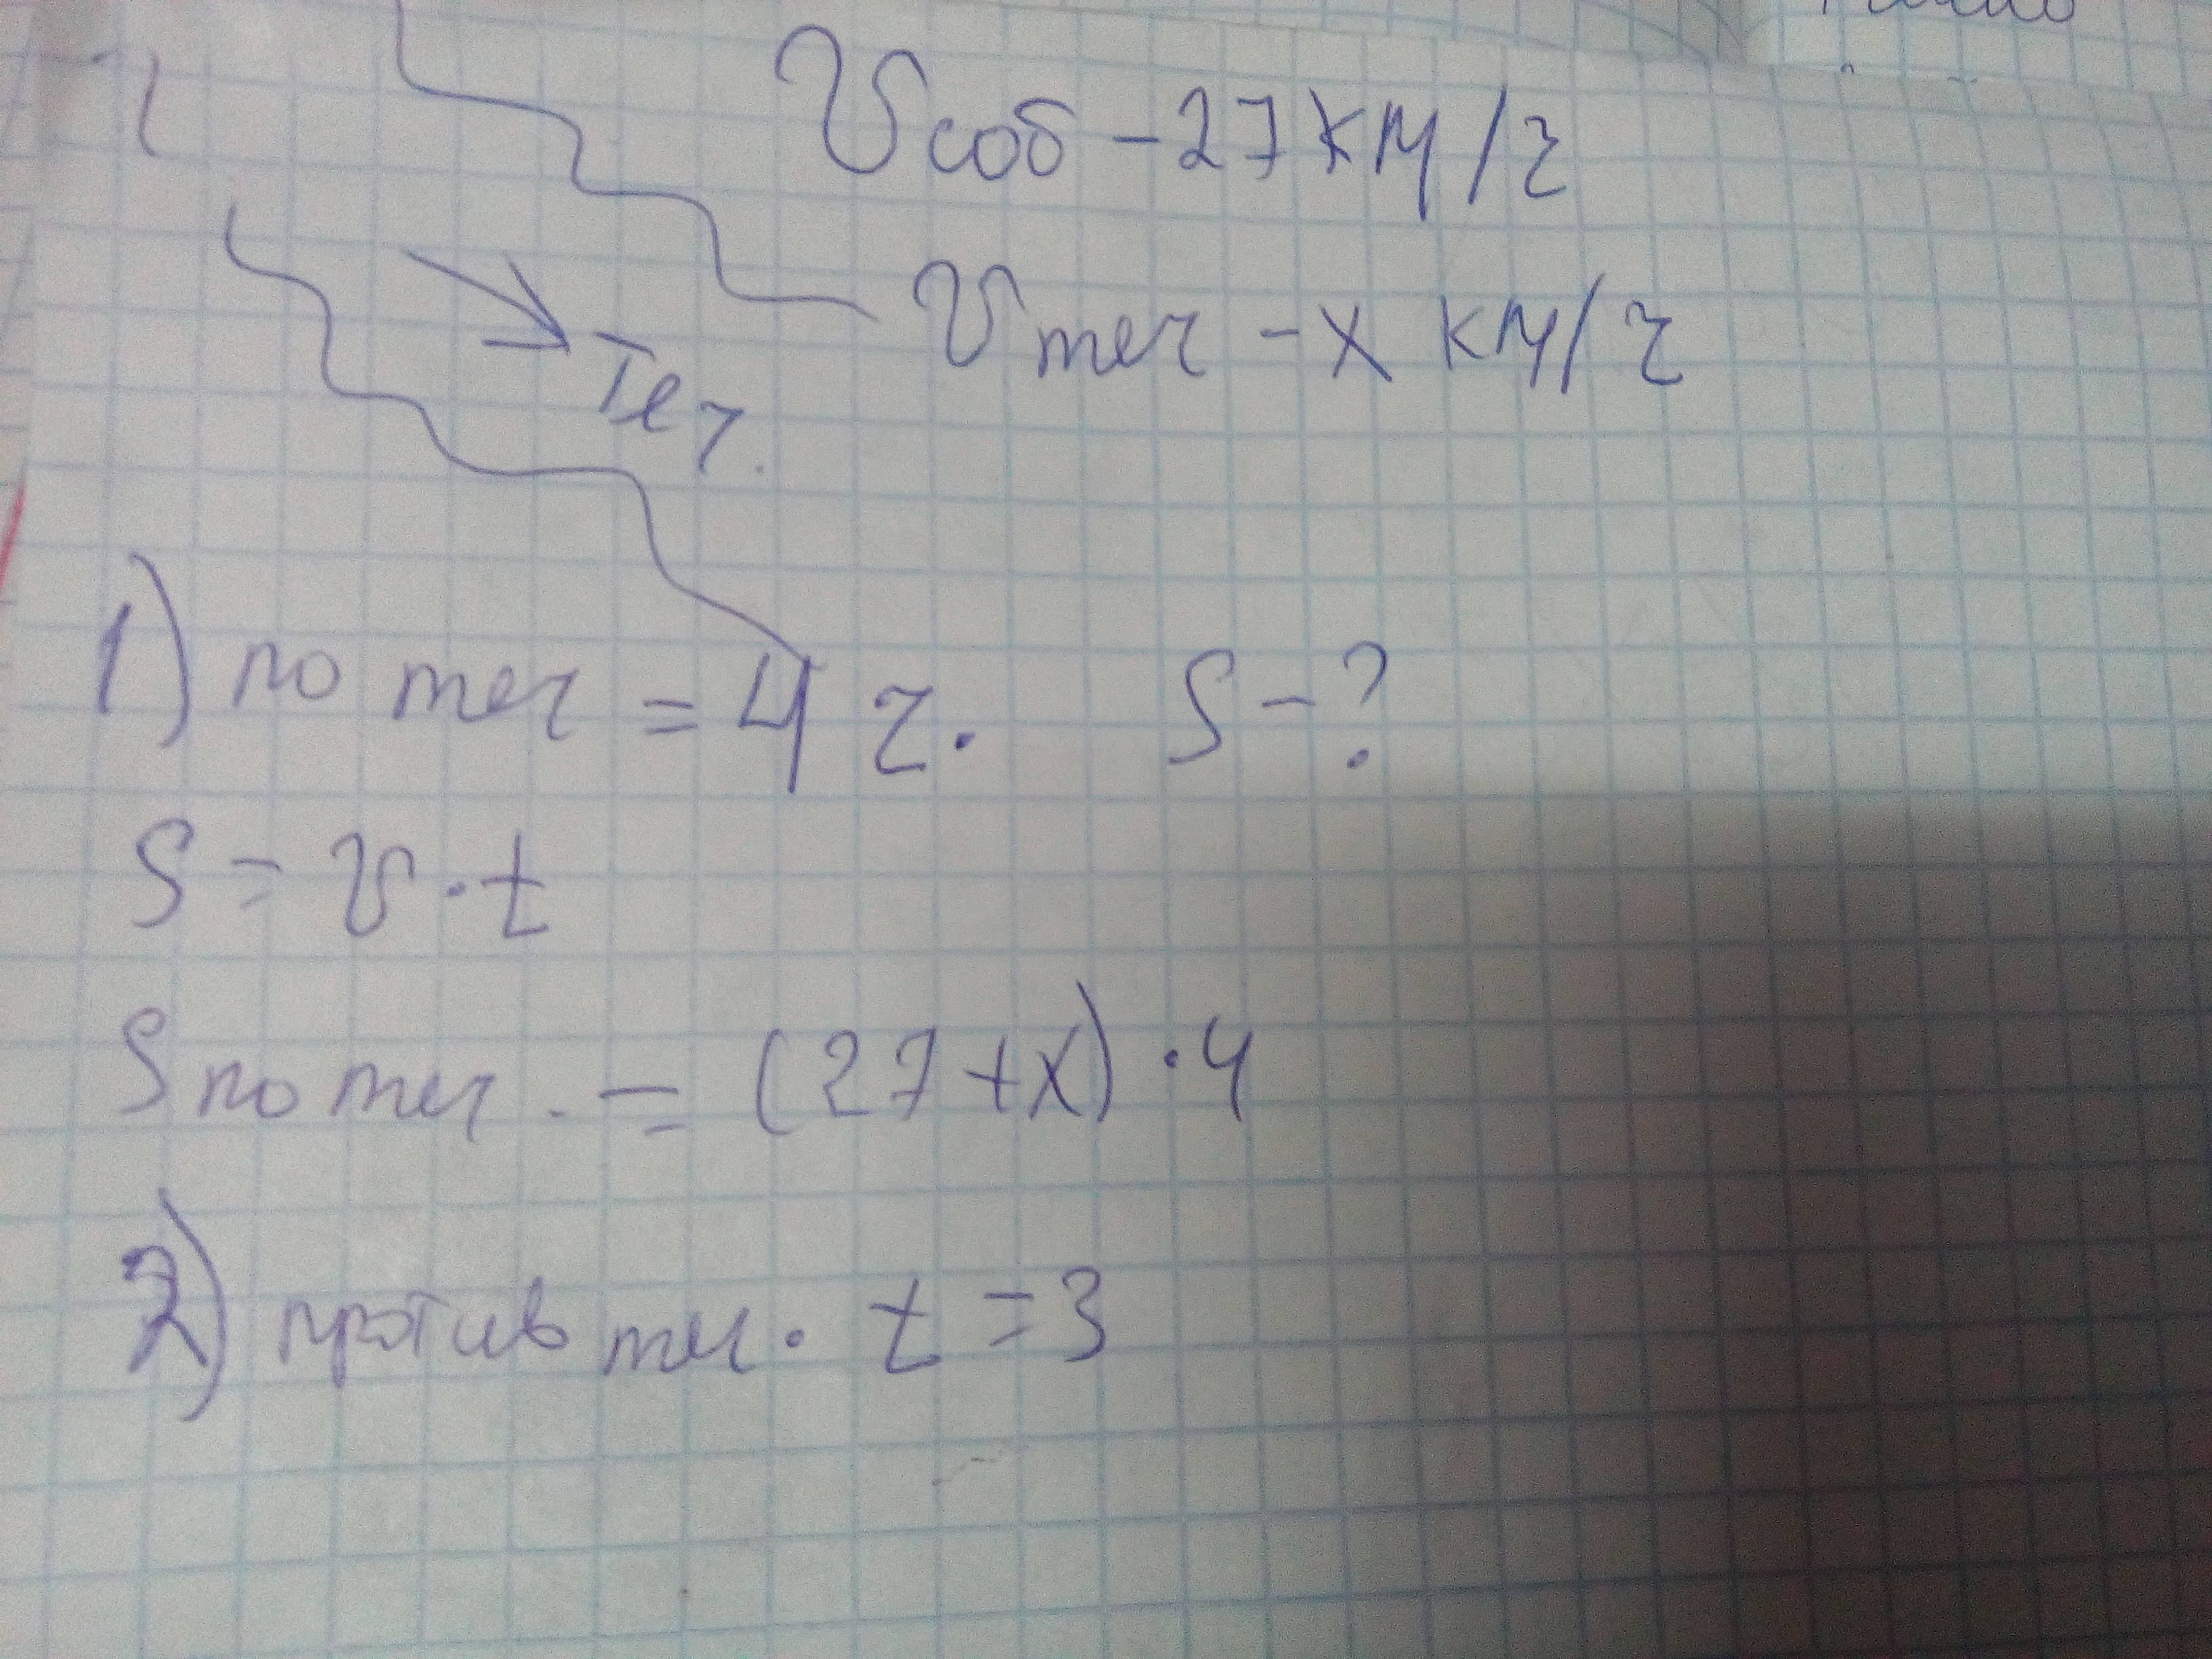 Vсоб - 27 км/ч
Vтеч - х км/ч
Теч.
1) по теч = 4 ч. S - ?
S = v · t
S по теч. = (27 + х) · 4
2) против теч. t = 3